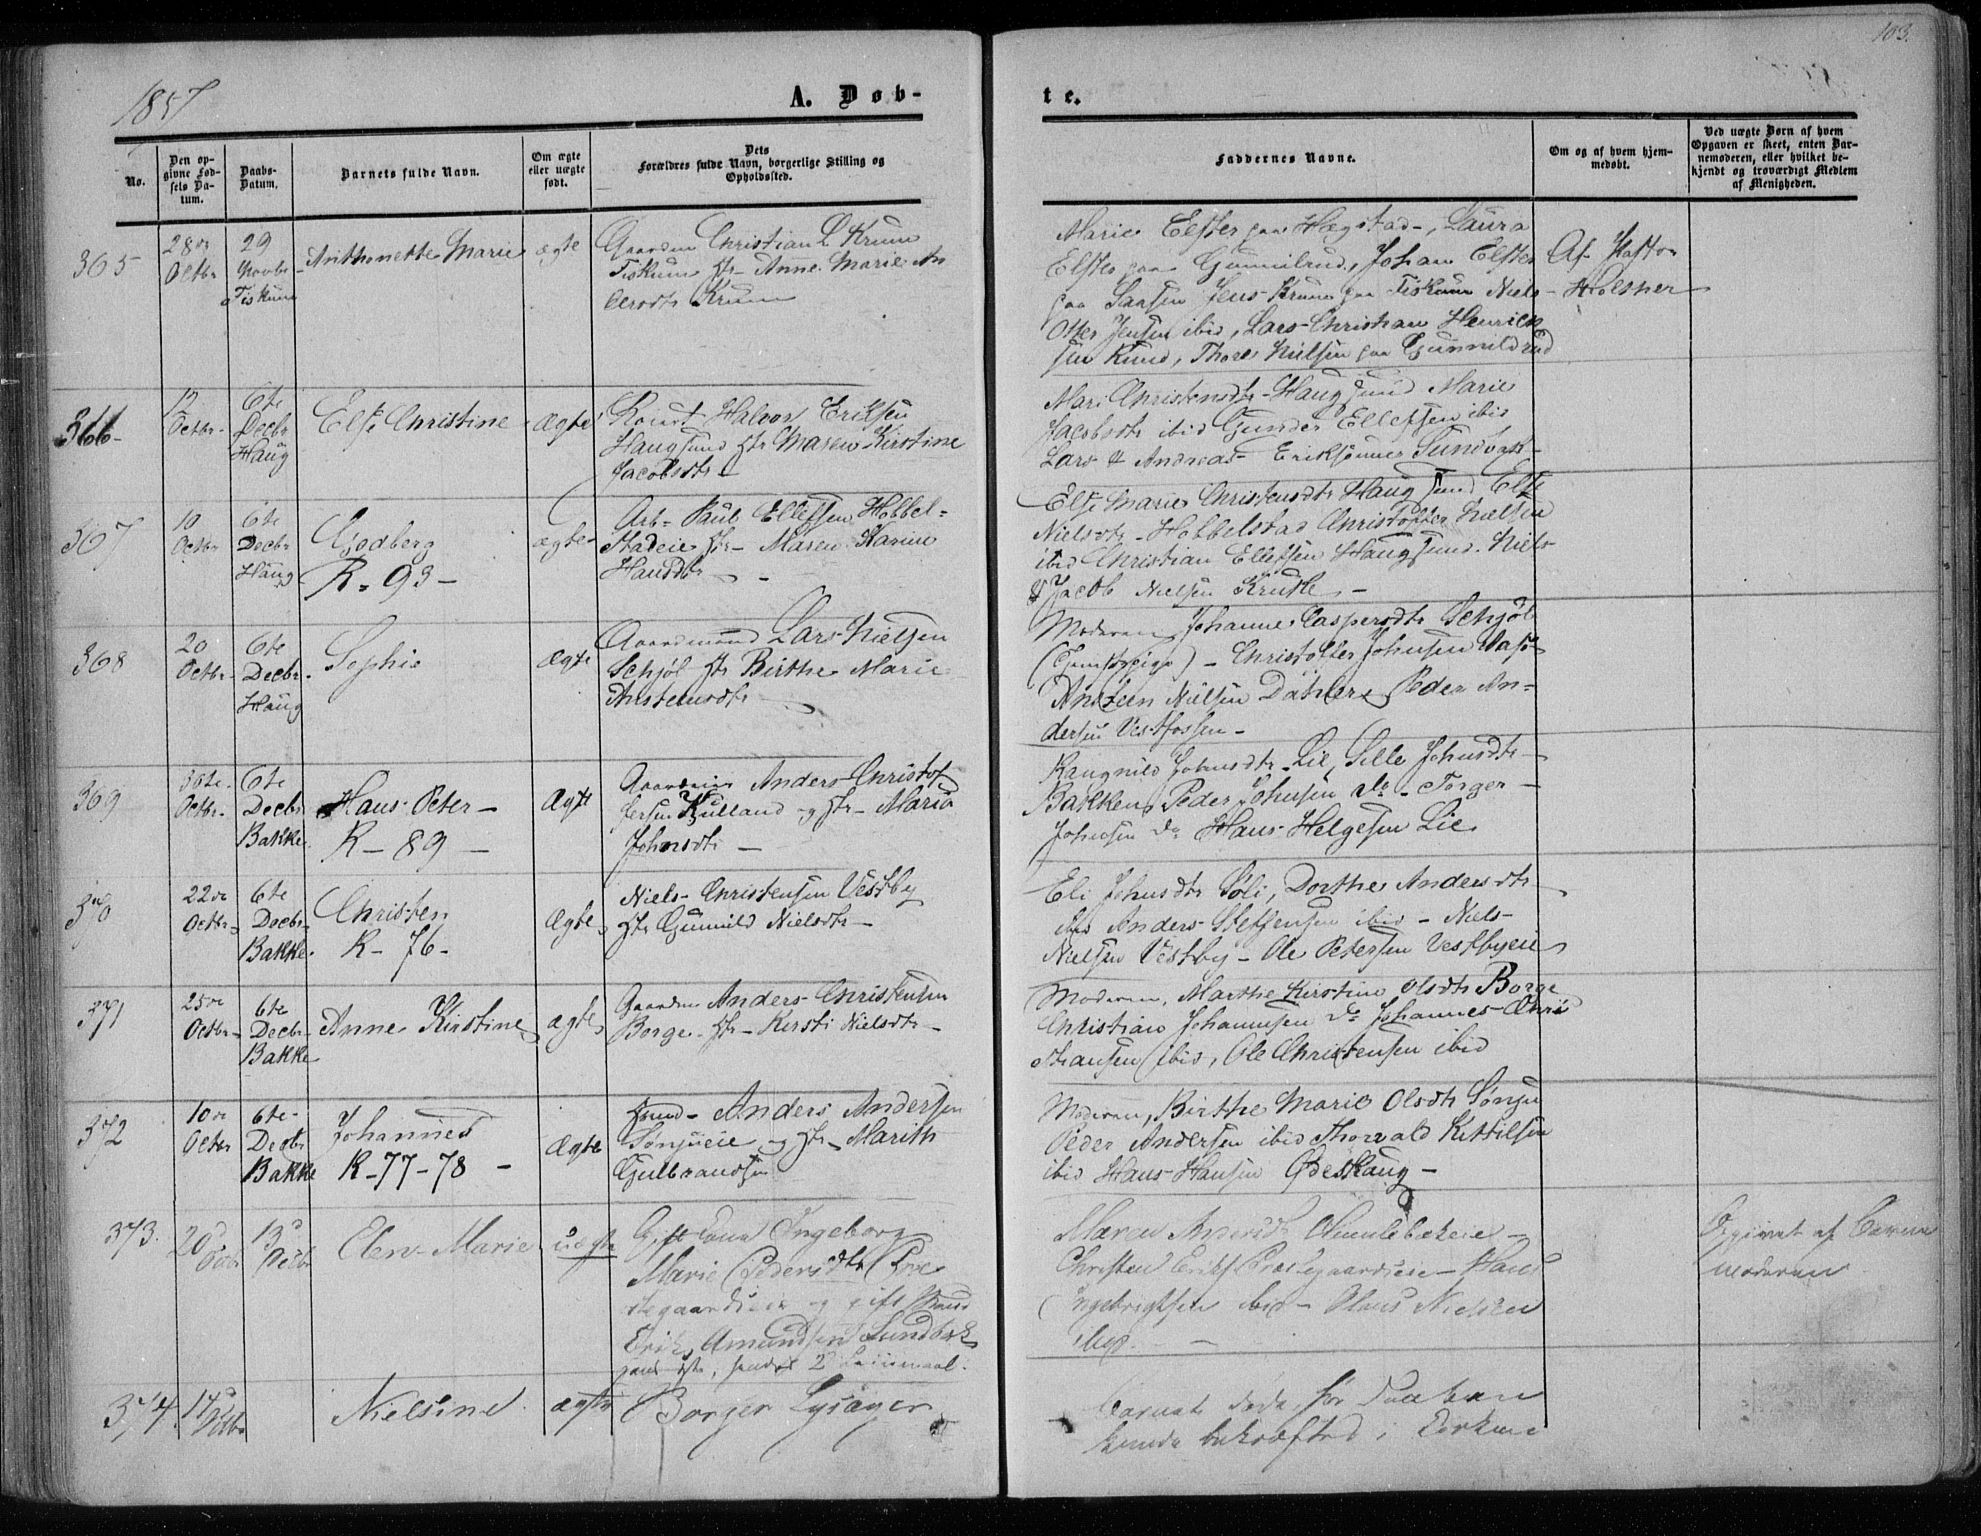 103.
1857
A. Døb-
te.
No.
Den op-
givne Fød-
sels Da-
tum.
Daabs-
Datum.
Barnets fulde Navn.
Om ægte
eller uægte
født.
Dets
Forældres fulde Navn, borgerlige Stilling og
Opholdssted.
Faddernes Navne.
Om og af hvem hjem-
medøbt.
Ved uægte Børn af hvem
Opgaven er skeet, enten Bar-
nemoderen, eller hvilket be-
kjendt og troværdigt Medlem
af Menigheden.
365
28de
Octbr
29
Novbr
Fiskum
Anthonette Marie
ægte
Gaardm Christian L Krum
Fiskum Anne Marie An
Krum
Marie Elster paa Hægstad-, Laura
Elster paa Gunnilrud, Johan Elster
paa Saasen Jens Krum paa Fiskum Niels
Otter Jensen ibid, Lars Christian Henrick
sen Krum, Thore Nilsen paa Gunnildrud
Af Pastor
Hoelsher
366-
12
Octbr-
6te
Decbr
Haug
Else Christine
Ægte
Halvor Eriksen
Haugsund Maren Kirstine
Jacobsdtr
Mari Christensdtr Haugsund Marie
Jacobsdtr ibid Gunder Ellefsen ibid
Lars & Andreas Eriksønner Sundbak-
367
10
Octbr
6te
Decbr
Haug
Godberg
R. 93-
ægte-
Arb- Paul Ellefsen Hobbel-
stadeie Maren Karine
Hansdtr
Else Marie Christensdtr Haugsund Else
Nielsdtr- Hobbelstad Christopher Nielsen
ibid Christian Ellefsen Haugsund- Niels
& Jacob Nielsen Kruke-
368
20
Octbr-
6te
Decbr-
Haug
Sophie
Ægte
Gaardmand Lars Nielsen
Schjøl Birthe Marie
Moderen Johanne Caspersdtr Schjøl
- Christopher Johnsen
Nielsen Dahler, Peder An-
dersen Vestfossen-
369
30te
Octbr-
6te
Decbr
Bakke
Hans Peter-
R-89-
Ægte
Anders Christof
fersen og Maria
Johnsdtr-
Rangnild Johnsdtr- Lie, Sille Johnsdtr-
Bakken, Peder Johnsen do- Torger-
Johnsen do Hans Helgesen Lie
370
22de
Octbr-
6te
Decbr-
Bakke-
Christen
R-76-
Ægte
Niels Christensen Vestby
Gunnild Nielsdtr-
Eli Johnsdtr Søli, Dorthe Andersdtr
Anders Steffensen ibid- Niels-
Nielsen Vestby- Ole Petersen Vestbyeie
371
25de
Octbr-
6te
Decbr-
Bakke
Anne Kirstine
ægte
Gaardm Anders Christensen
Borge- Kersti Nielsdtr-
Moderen, Marthe Kirstine Olsdtr Borge
Christian Johannesen do Johannes Chri
stiansen ibid, Ole Christensen ibid
372
10de
Octbr
6te-
Decbr
Bakke
Johannes
R-77-78-
Ægte
Anders Andersen
Sønjueie og Marith
Gulbrandsen
Moderen, Birthe Marie Olsdtr Sønju
Peder Andersen ibid Thorvald Kittilsen
ibid Hans Hansen Ødeskaug-
373.
20
Octbr
13
Decbr
Elen Marie
uægte
Gift Ingeborg
Marie Pedersdtr Præ
stegaardseie og gift Mand
Erik Amundsen Sundbak
2
Maren Andersdtr
Christen Eriks Præstegaardseie- Hans
Ingebrigtsen ibid- Olaus Nielsen
ibid.
Opgivet af Barne
moderen
374.
14
Nielsine
ægte
Borger Lysager
Barnet døde før Daaben
kunde bekræftes i Kirken